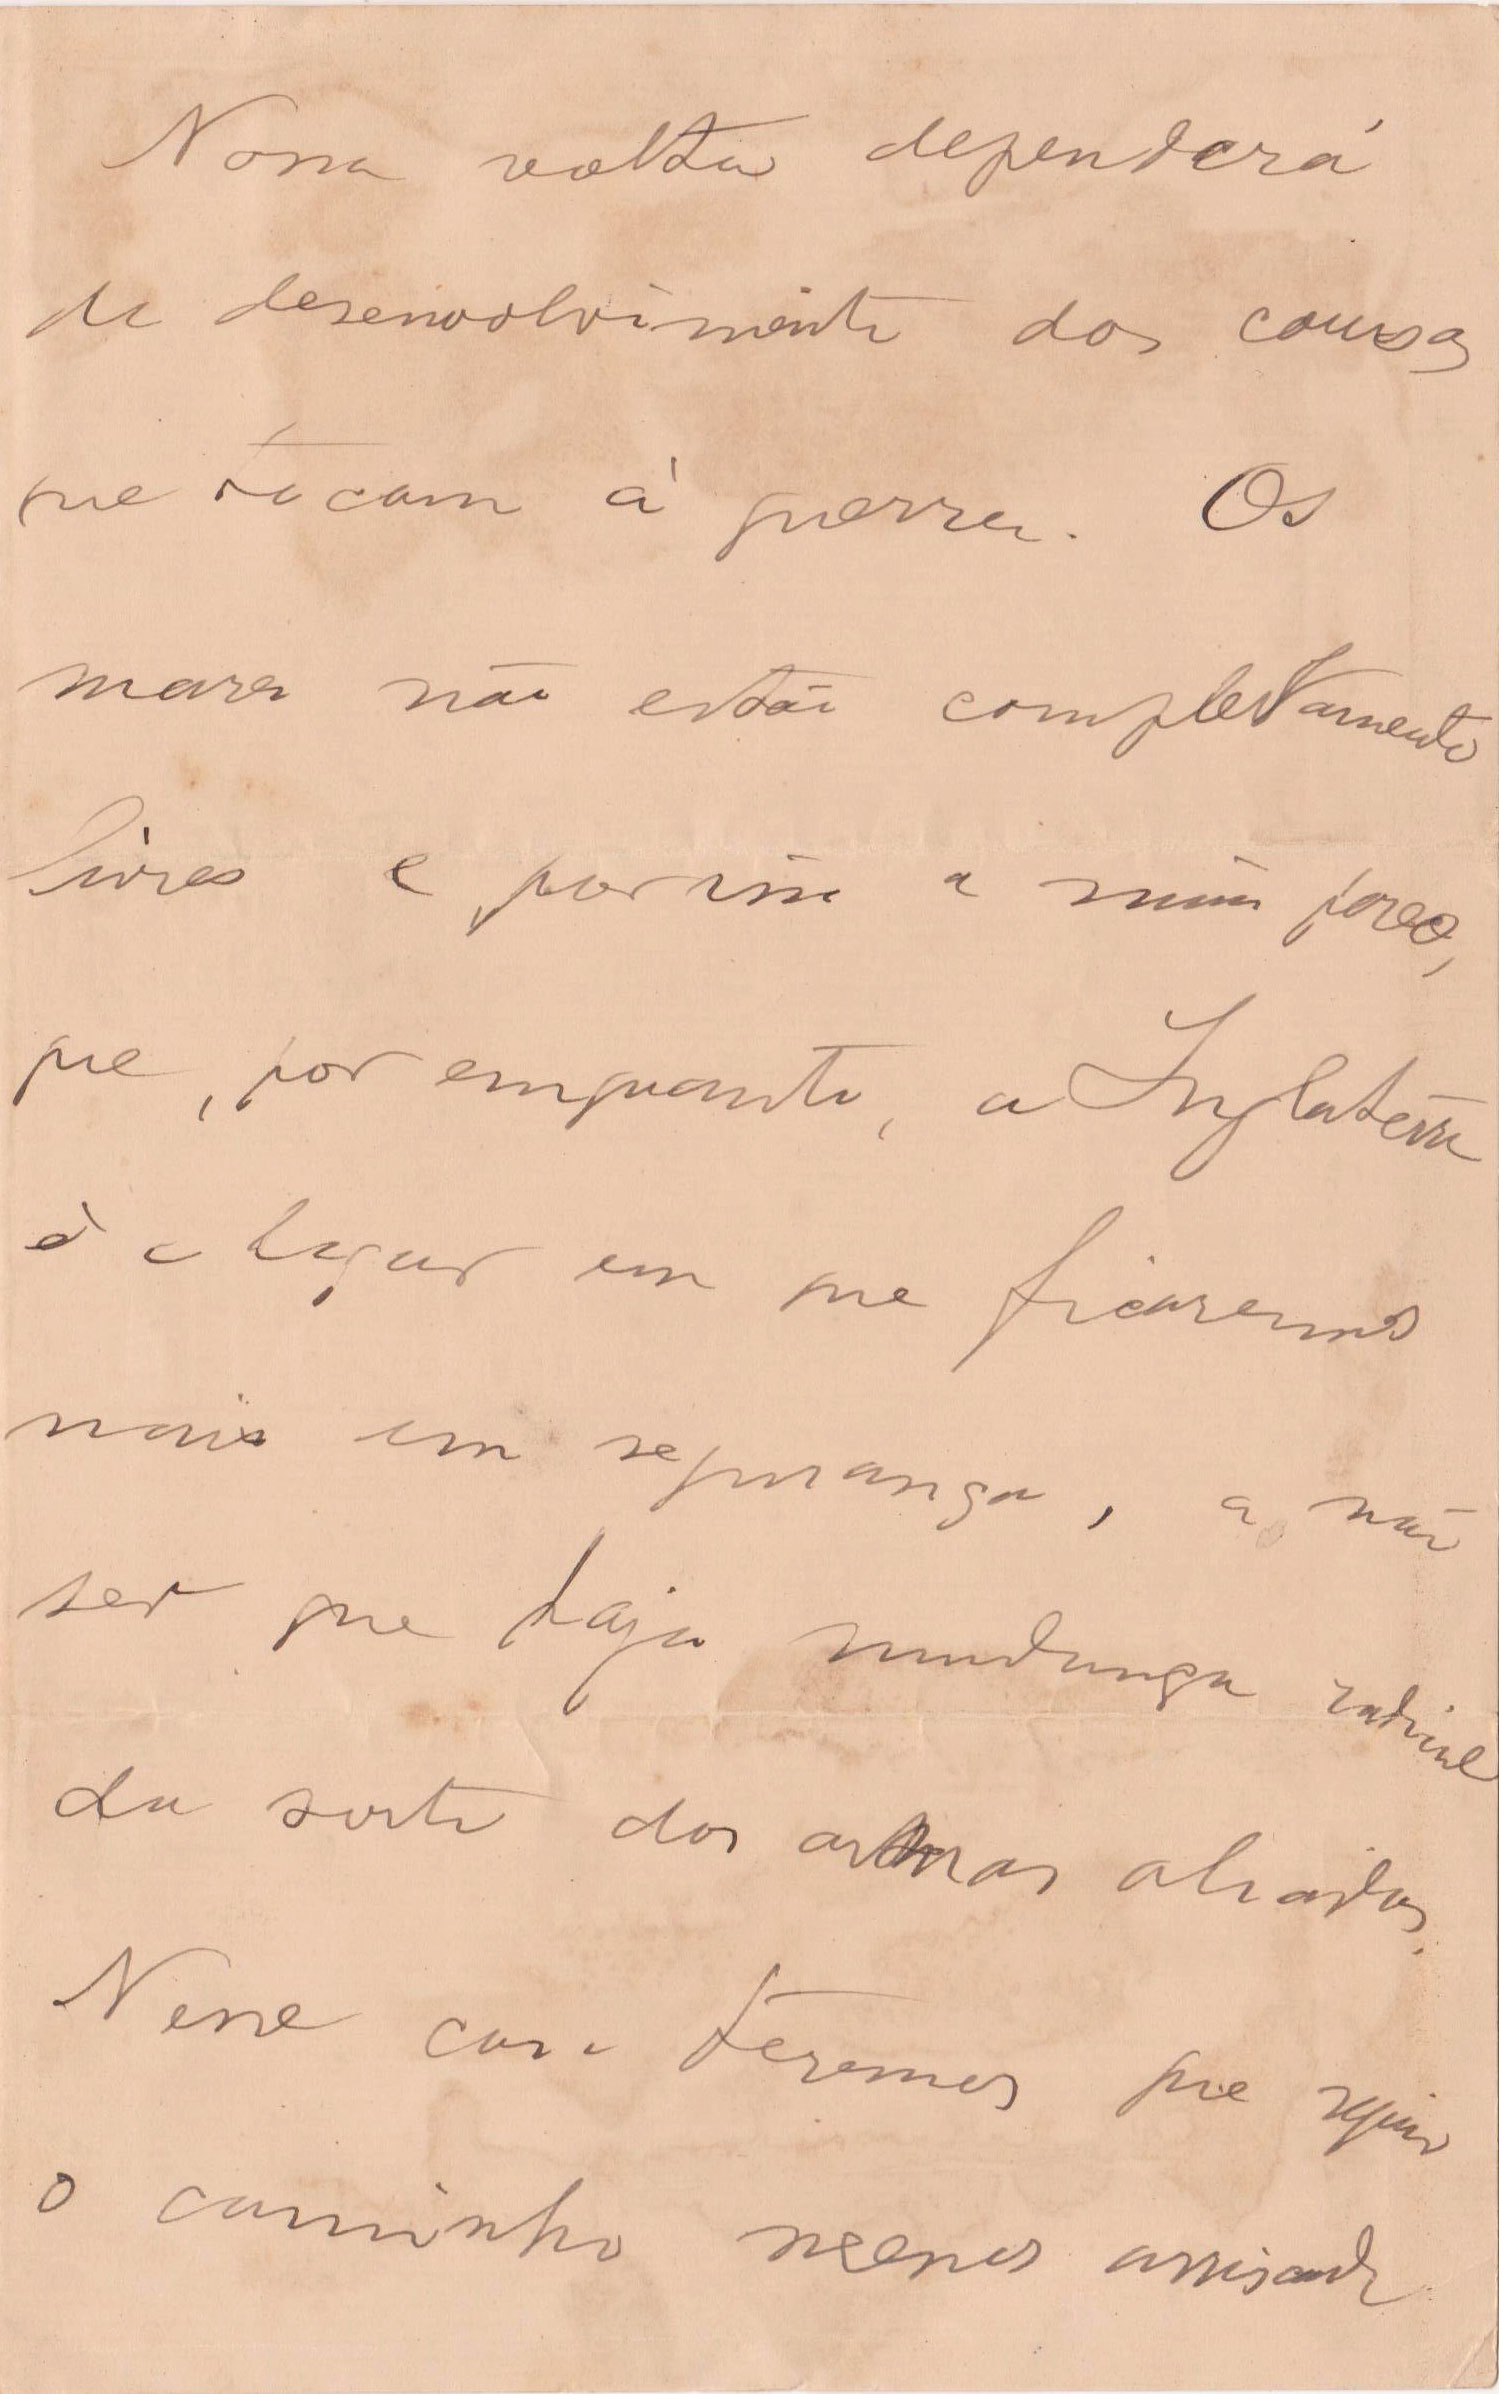 Nossa volta dependerá
do desenvolvimento das cousas
que tocam á guerra. Os
mares não estão completamente
livres e por isso a mim parece,
que, por emquanto, a Inglaterra
é o lugar em que ficaremos
mais em segurança, a não
ser que haja mudança radical
da sorte das armas aliadas.
Nesse caso teremos que seguir
o caminho menos arriscado